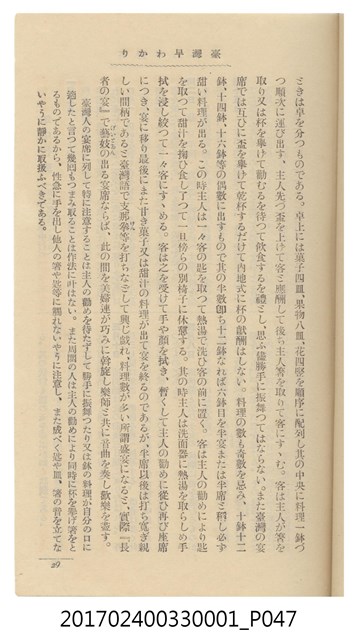 臺灣早わかり
ときは卓を分つものである。卓上には菓子四皿、果物八皿、花四瓶を順序に配列し其の中央に料理一鉢づ
つ順次に運び出す。主人先づ盃を上げて客と應酬して後ち主人箸を取りて客にすゝむ。客は主人が箸を
取り又は杯を擧けて勸むるを待つて飮食するを禮とし、思ふ儘勝手に振舞つてはならない。また臺灣の宴
席では互ひに盃を擧けて乾杯するだけで内地式に杯の獻酬はしない。料理の數も奇數を忌み、十鉢十二
鉢、十四鉢、十六鉢等の偶數に出すもので其の半數卽ち十二鉢なれば六鉢目を半宴または半席と稱し必ず
甜い料理が出る。この時主人は一々客の匙を取つて熱湯で洗ひ客の前に置く。客は主人の勸めにより匙
を取つて甜汁を掬ひ食し了つて一旦傍らの別椅子に休憩する。其の時主人は洗面器に熱湯を取らしめ手
拭を浸し絞つて一々客にすゝめる。客は之を受けて手や顏を拭き、暫くして主人の勸めに從ひ再び座席
につき、宴に移り最後にまた甘き菓子又は甜汁の料理が出て宴を終るのであるが、半席以後は打ち寛ぎ親
しい間柄であると臺灣語で支那拳等を打ちなどして興じ戯れ、料理數が多い所謂盛宴になると、實際『長
者の宴』で藝妓の出る宴席ならば、此の間を美婦連が巧みに斡旋し樂師と共に音曲を奏し歡樂を盡す。
臺灣人の宴席に列して特に注意することは主人の勸めを待たずして勝手に振舞つたり又は鉢の料理が自分の口に
適したと言つて幾回もつまみ取ることは作法に叶はない。また周圍の人は主人の勸めにより同時に杯を擧げ箸をと
るものであるから、性急に手を出し他人の箸や匙等に觸れないやうに注意し、また成べく匙や皿、箸の音を立てな
いやうに靜かに取扱ふべきである。
29
201702400330001_P047